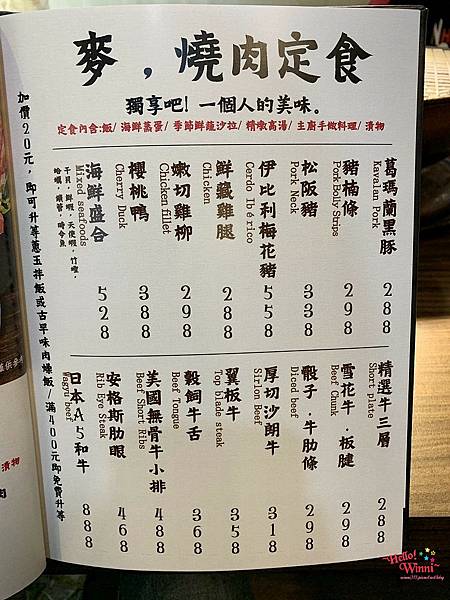 麥，燒肉定食
獨享吧! 一個人的美味。
定食內含:飯/ 海鮮蒸蛋/ 季節鮮蔬沙拉/ 精燉高湯/ 主廚手做料理/ 漬物
葛瑪蘭黑豚
Kavalan Pork
288
豬楠條
Pork Belly Strips
298
松阪豬
Pork Neck
338
伊比利梅花豬
Cerdo Ibérico
558
鮮藏雞腿
Chicken
288
嫩切雞柳
Chicken fillet
298
櫻桃鴨
Cherry Duck
388
海鮮盛合
Mixed seafoods
干貝，鮮蝦，天使蝦，竹蟶，
蛤蠣，頭管，時令魚
528
精選牛三層
Short plate
288
雪花牛．板腱
Beef Chunk
298
骰子．牛肋條
Diced beef
298
厚切沙朗牛
Sirlon Beef
318
翼板牛
Top blade steak
358
穀飼牛舌
Beef Tongue
368
美國無骨牛小排
Beef Short Ribs
488
安格斯肋眼
Rib Eye Steak
468
日本A5和牛
Wagyu beef
888
加價20元，即可升等蔥玉拌飯或古早味肉燥飯/滿400元即免費升等
漬物
~Hello!
Winni~